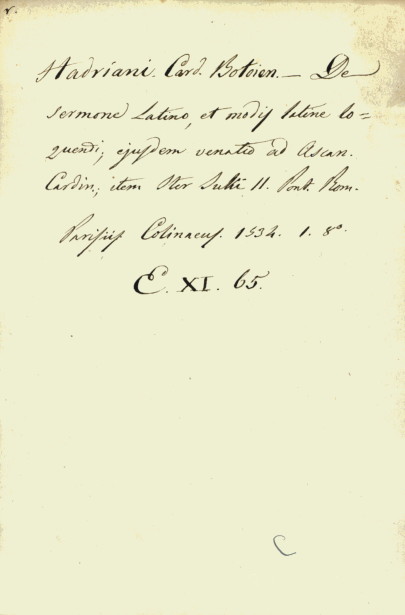 r.
Hadriani. Card. Botoien. — De
sermone Latino, et modis latine lo=
quendi; ejusdem venatio ad Ascan.
Cardin; item Iter Julii II. Pont. Rom.
Parisiis Colinaeus. 1534. 1. 8°.
E. XI. 65.
C